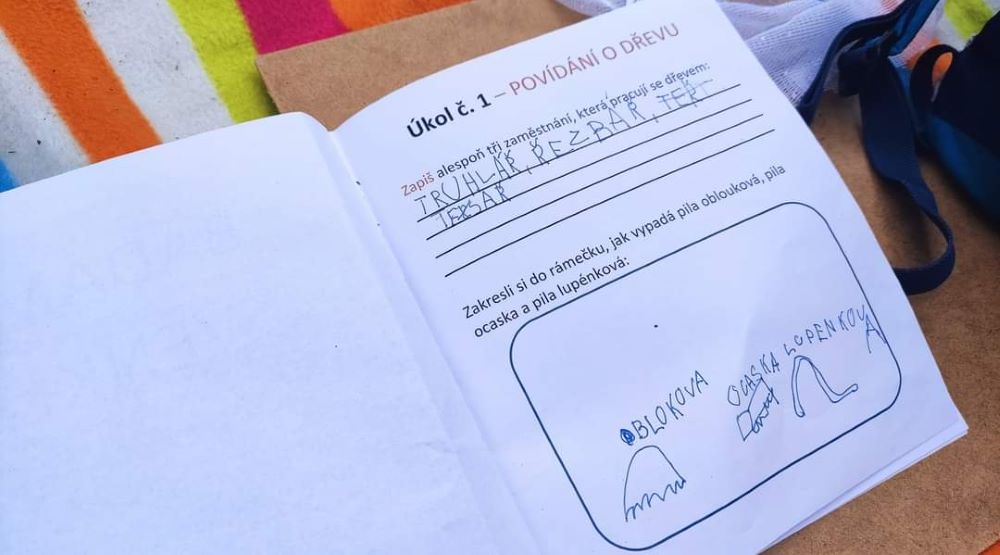 Úkol č. 1 – POVÍDÁNÍ O DŘEVU
Zapiš alespoň tři zaměstnání, která pracují se dřevem:
TRUHLÁŘ, ŘEZBÁŘ, TEŘ
TESAŘ
Zakresli si do rámečku, jak vypadá pila oblouková, pila
ocaska a pila lupénková:
OBLOKOVA
OCASKA
LUPENKOVA